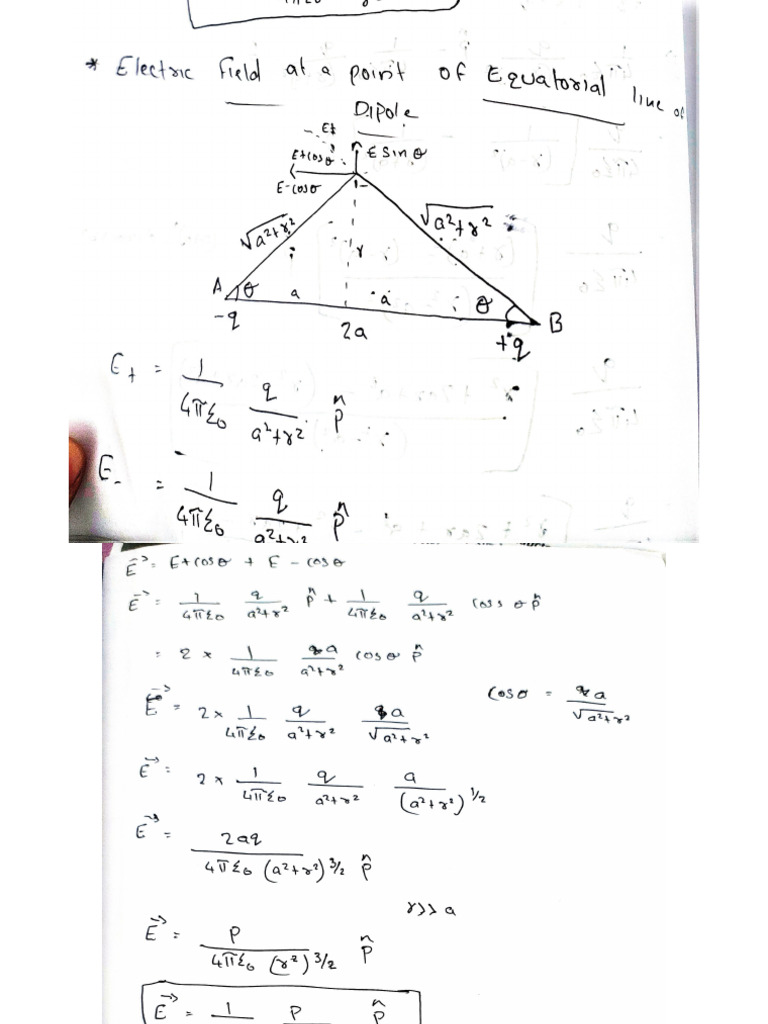 * Electric field at a point of Equatorial line of
Dipole
E+
E+cosθ
E sin θ
E-cosθ
√a²+r²
√a²+r²
r
A θ a a θ B
-q 2a +q
E+ = 1/4πε₀ q/a²+r² p̂
E- = 1/4πε₀ q/a²+r² p̂
E⃗ = E+cosθ + E-cosθ
E⃗ = 1/4πε₀ q/a²+r² p̂ + 1/4πε₀ q/a²+r² coss θ p̂
= 2 × 1/4πε₀ qa/a²+r² cosθ p̂
E⃗ = 2× 1/4πε₀ q/a²+r² a/√a²+r² cosθ = a/√a²+r²
E⃗ = 2× 1/4πε₀ q/a²+r² a/(a²+r²)^1/2
E⃗ = 2aq/4πε₀ (a²+r²)^3/2 p̂
r>>a
E⃗ = p/4πε₀ (r²)^3/2 p̂
E⃗ = 1 p p̂